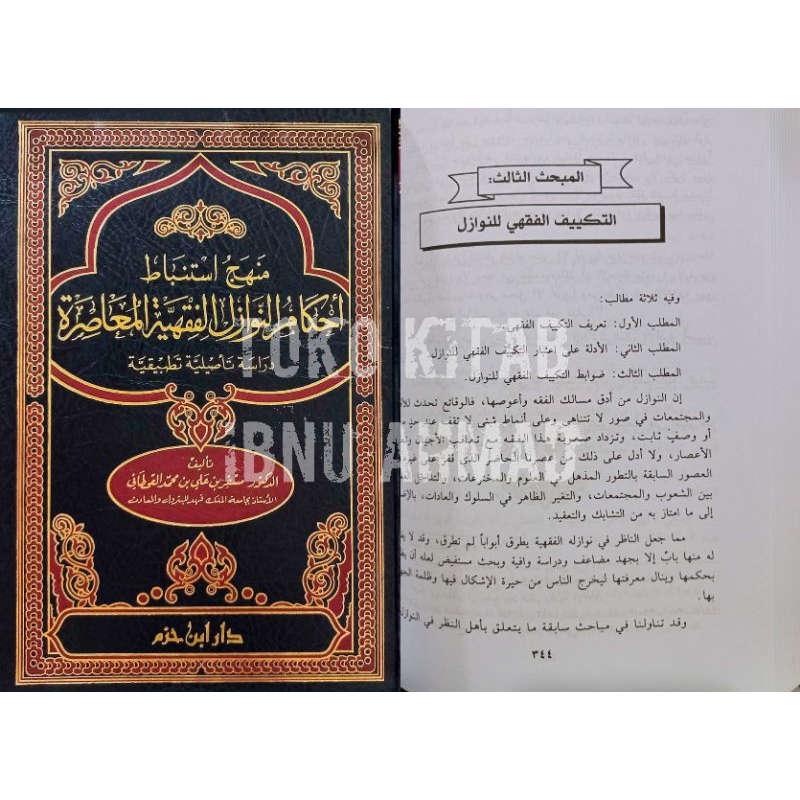 منهج استنباط
أحكام النوازل الفقهية المعاصرة
دراسة تأصيلية تطبيقية
تأليف
الدكتور مسفر بن علي بن محمد القحطاني
الأستاذ بجامعة الملك فهد للبترول والمعادن
دار ابن حزم
المبحث الثالث:
التكييف الفقهي للنوازل
وفيه ثلاثة مطالب:
المطلب الأول: تعريف التكييف الفقهي.
المطلب الثاني: الأدلة على اعتبار التكييف الفقهي للنوازل.
المطلب الثالث: ضوابط التكييف الفقهي للنوازل.
إن النوازل من أدق مسالك الفقه وأعوصها، فالوقائع تحدث
والمجتمعات في صور لا تتناهى وعلى أنماط شتى لا تقف عند
أو وصف ثابت، وتزداد صعوبة هذا الفقه مع تعاقب
الأعصار، ولا أدل على ذلك من عصرنا الحاضر الذي
العصور السابقة بالتطور المذهل في العلوم والمخترعات،
بين الشعوب والمجتمعات، والتغير الظاهر في السلوك والعادات،
إلى ما امتاز به من التشابك والتعقيد.
مما جعل الناظر في نوازله الفقهية يطرق أبواباً لم تطرق، وقد لا
له منها بابٌ إلا بجهد مضاعف ودراسة وافية وبحث مستفيض لعله أن
بحكمها وينال معرفتها ليخرج الناس من حيرة الإشكال فيها وظلمة
بها.
وقد تناولنا في مباحث سابقة ما يتعلق بأهل النظر في النوازل
٣٤٤
TOKO KITAB
IBNU AHMAD